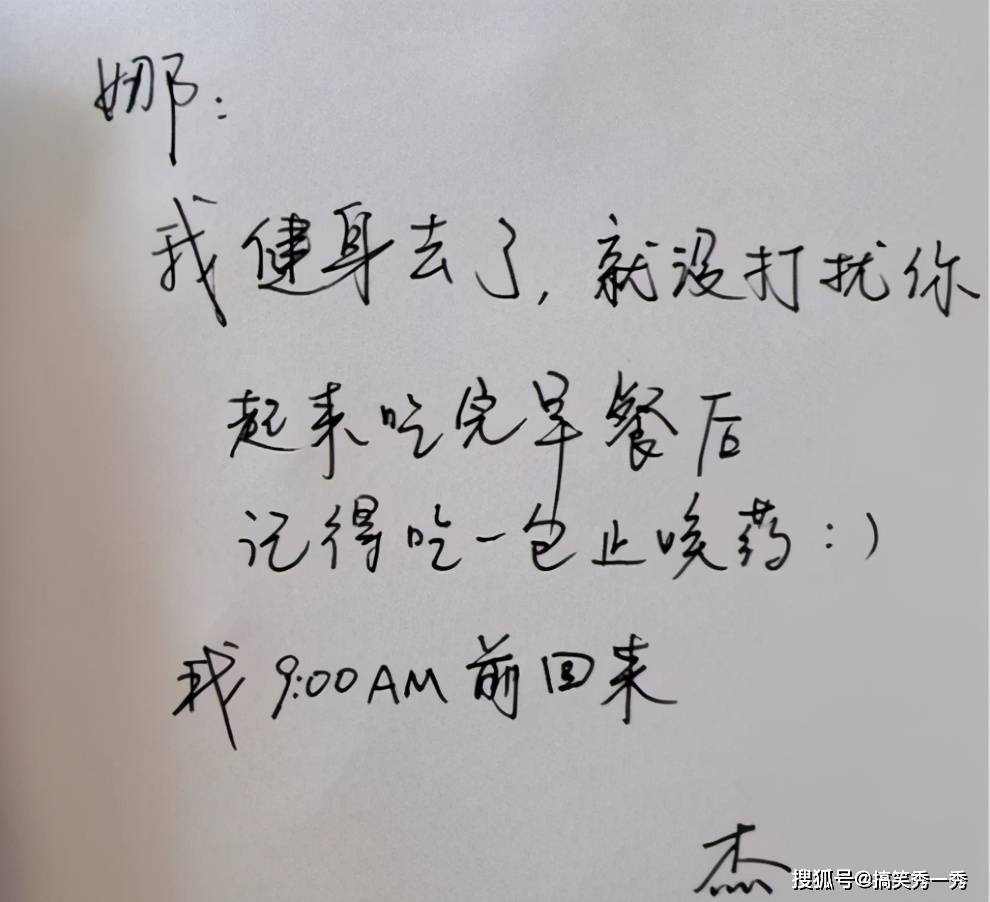 娜：
我健身去了，就没打扰你
起来吃完早餐后
记得吃一包止咳药：）
我9:00AM前回来
杰
搜狐号@搞笑秀一秀